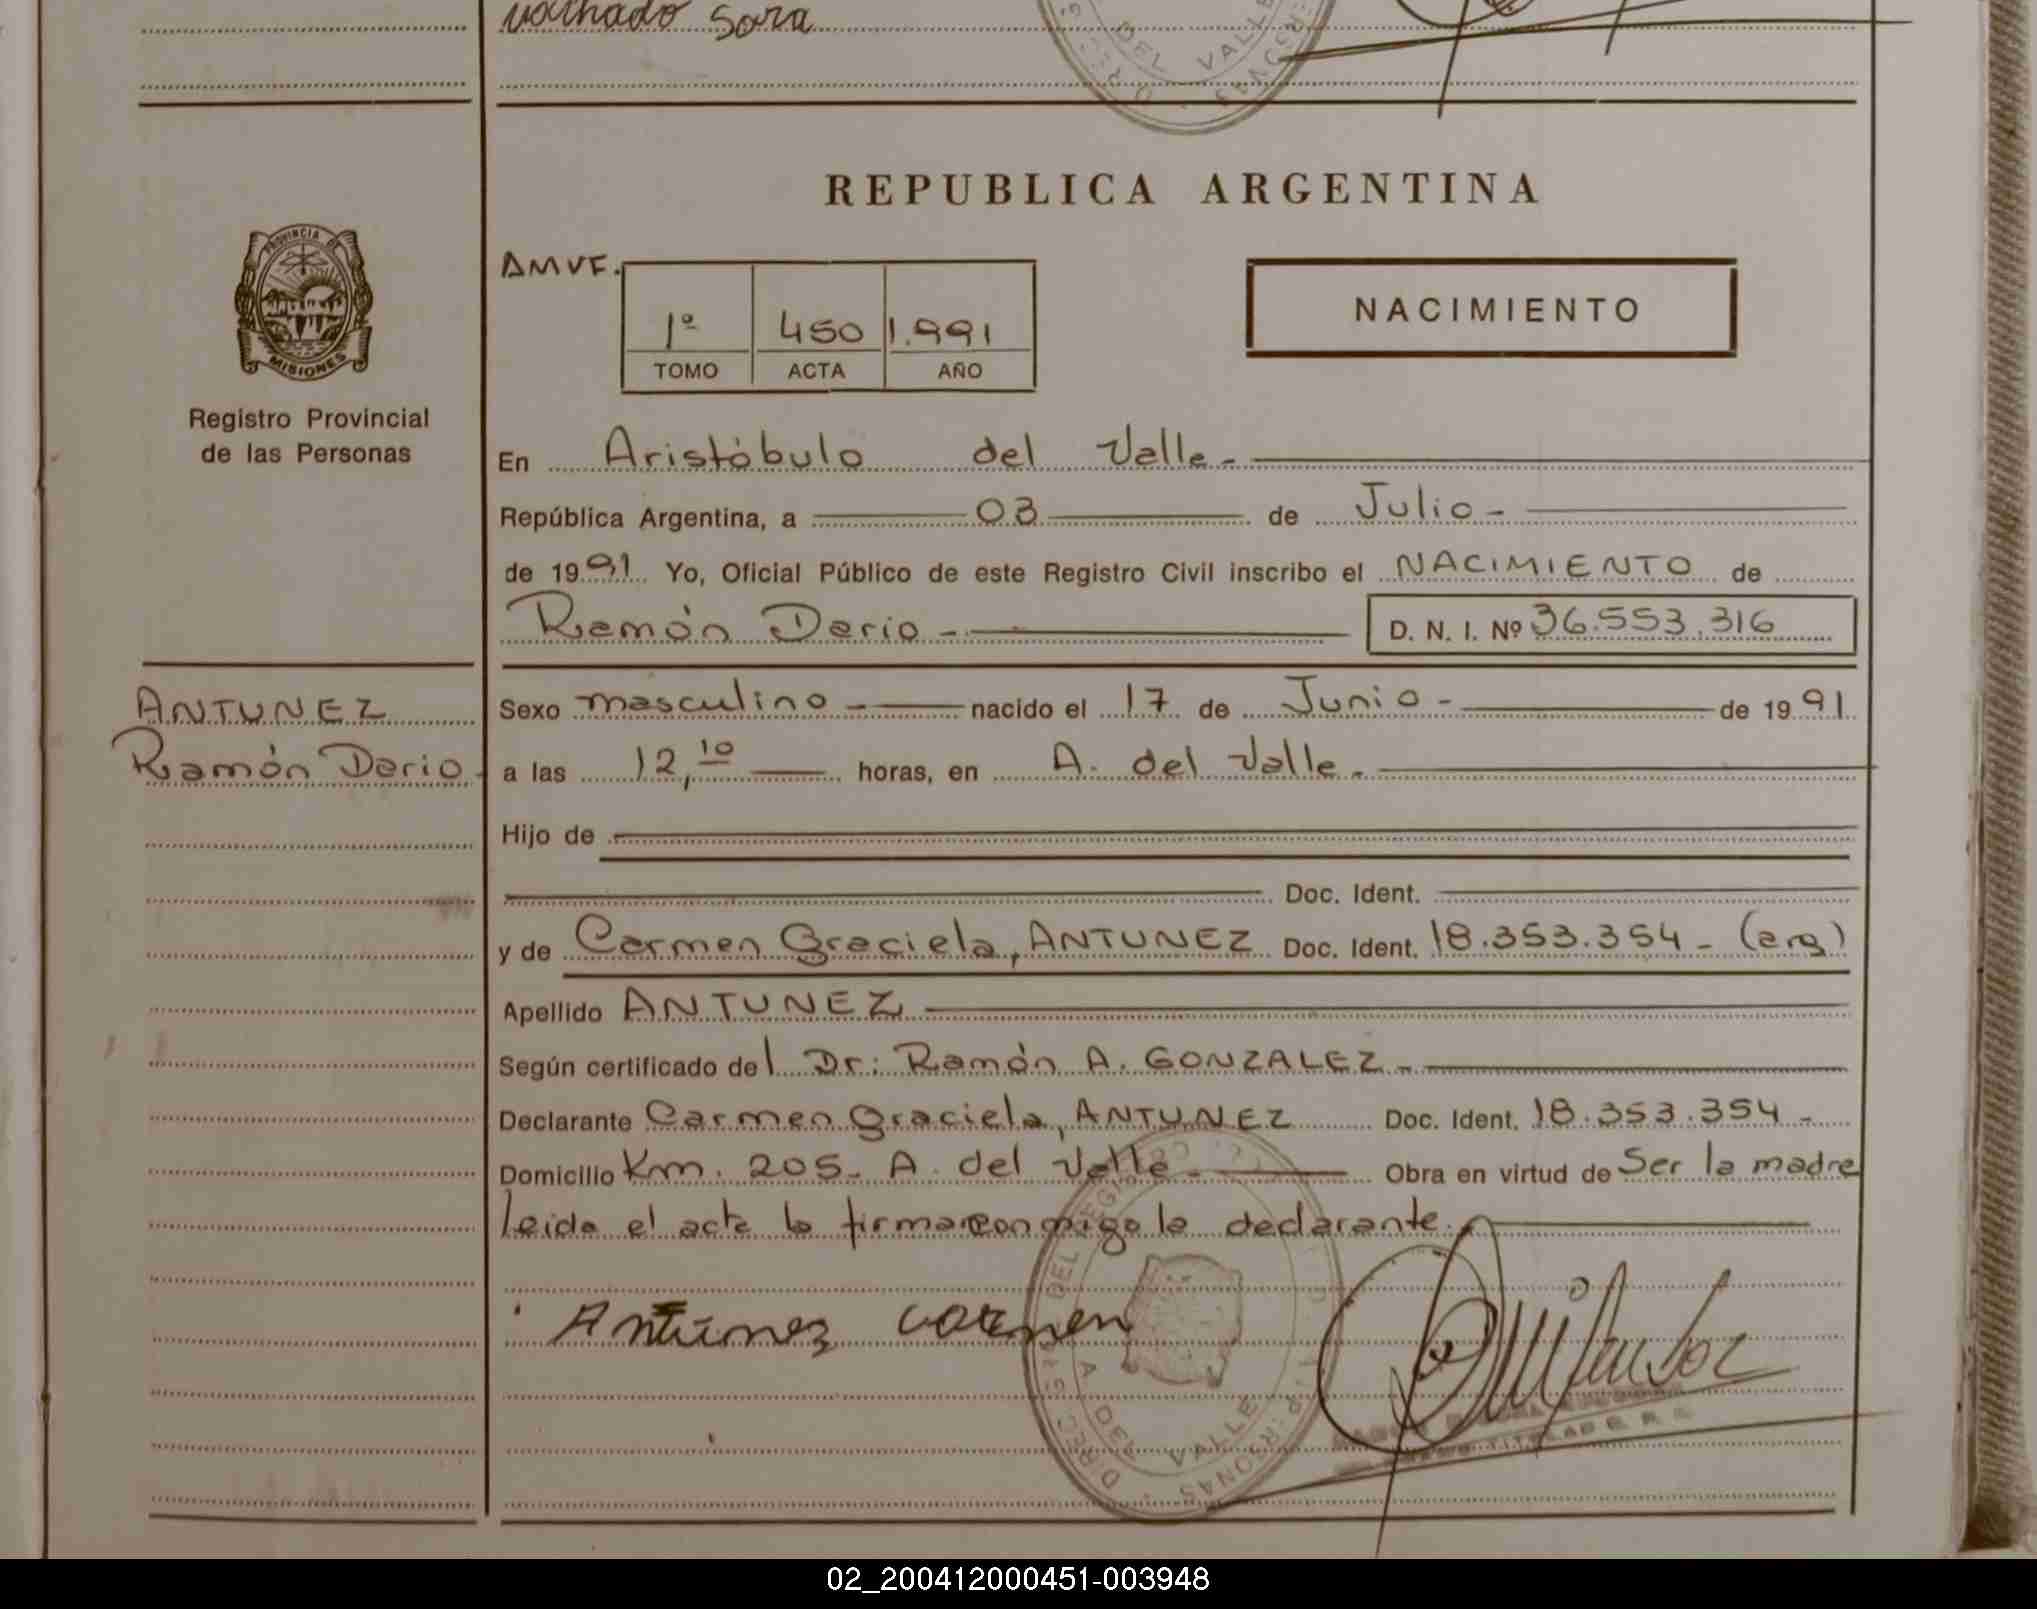 Sora
REPUBLICA ARGENTINA
PROVINCIA DE
MISIONES
Registro Provincial
de las Personas
AMVF.
1º 450 1.991
TOMO ACTA AÑO
NACIMIENTO
En Aristóbulo del Valle.-
República Argentina, a 03 de Julio-
de 1991 Yo, Oficial Público de este Registro Civil inscribo el NACIMIENTO de
Ramón Dario - D. N. I. Nº 36.553.316
ANTUNEZ
Ramón Dario -
Sexo masculino - nacido el 17 de Junio - de 1991
a las 12,10 horas, en A. del Valle.
Hijo de
Doc. Ident.
y de Carmen Graciela, ANTUNEZ Doc. Ident. 18.353.354 - (arg)
Apellido ANTUNEZ
Según certificado del Dr: Ramón A. GONZALEZ -
Declarante Carmen Graciela, ANTUNEZ Doc. Ident. 18.353.354 -
Domicilio Km. 205- A. del Valle - Obra en virtud de Ser la madre
leida el acta la firma con migo la declarante.
Antúnez Carmen
A. DEL VALLE
02_200412000451-003948